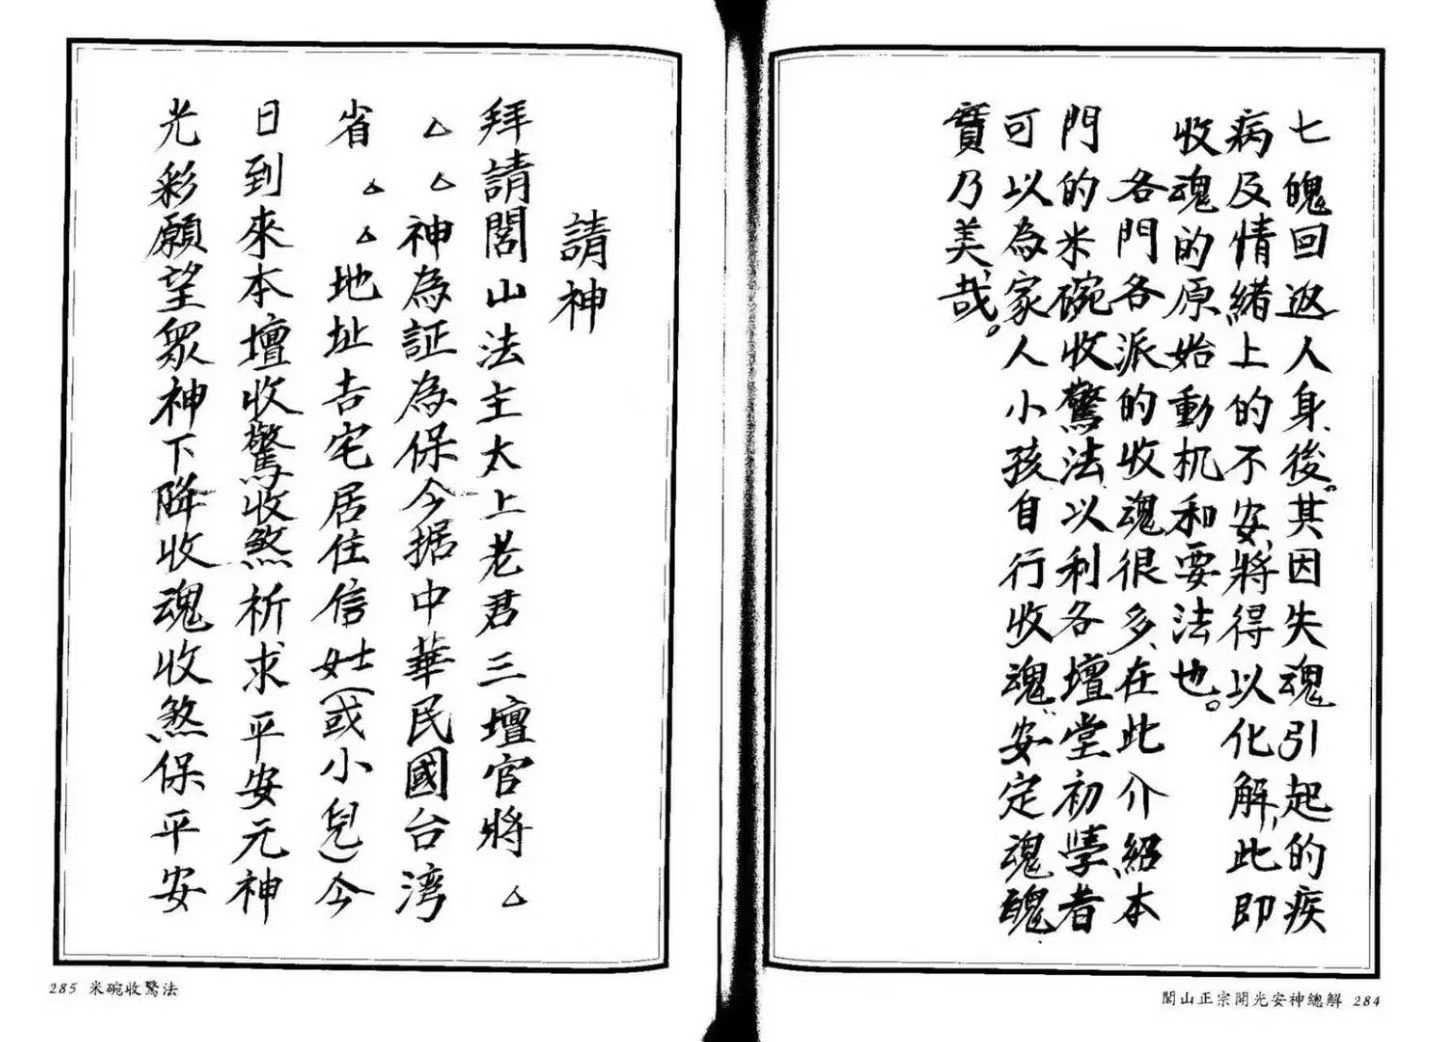 七魄回返人身後。其因失魂引起的疾
病及情緒上的不安,將得以化解,此即
收魂的原始動机和要法也。
各門各派的收魂很多,在此介紹本
門的米碗收驚法,以利各壇堂初學者
可以為家人小孩自行收魂,安定魂魄
寶乃美哉。
閭山正宗開光安神總解 284
請神
拜請閭山法主太上老君三壇官將△
△△神為証為保今据中華民國台湾
省△△地址吉宅居住信女士(或小兒)今
日到來本壇收驚收煞祈求平安元神
光彩願望眾神下降收魂收煞保平安
285 米碗收驚法